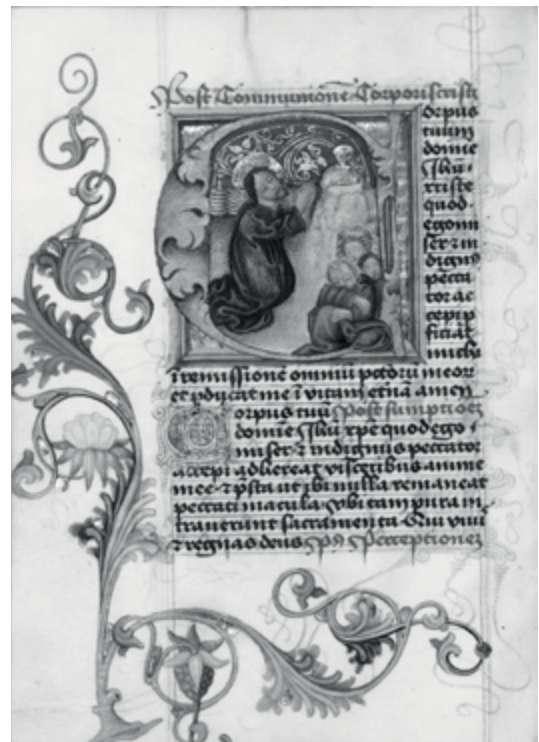 Post Communione Corporis cristi
orpus
tuum
domine
Jhu
xriste
quod
ego mi
ser et in
dignus
pecca
tor ac
cepi
michi
i remissionē omniū pctorū meor
et pducat me i vitam etnā amen
orpus tuū Post sumptioez
domīe Jhu xpe quod ego
miser et indignus peccator
accepi adhereat visceribus anime
mee et psta ut ibi nulla remaneat
peccati macula vbi tam pura in
trauerunt sacramenta Qui viuis
et regnas deus Perceptionez